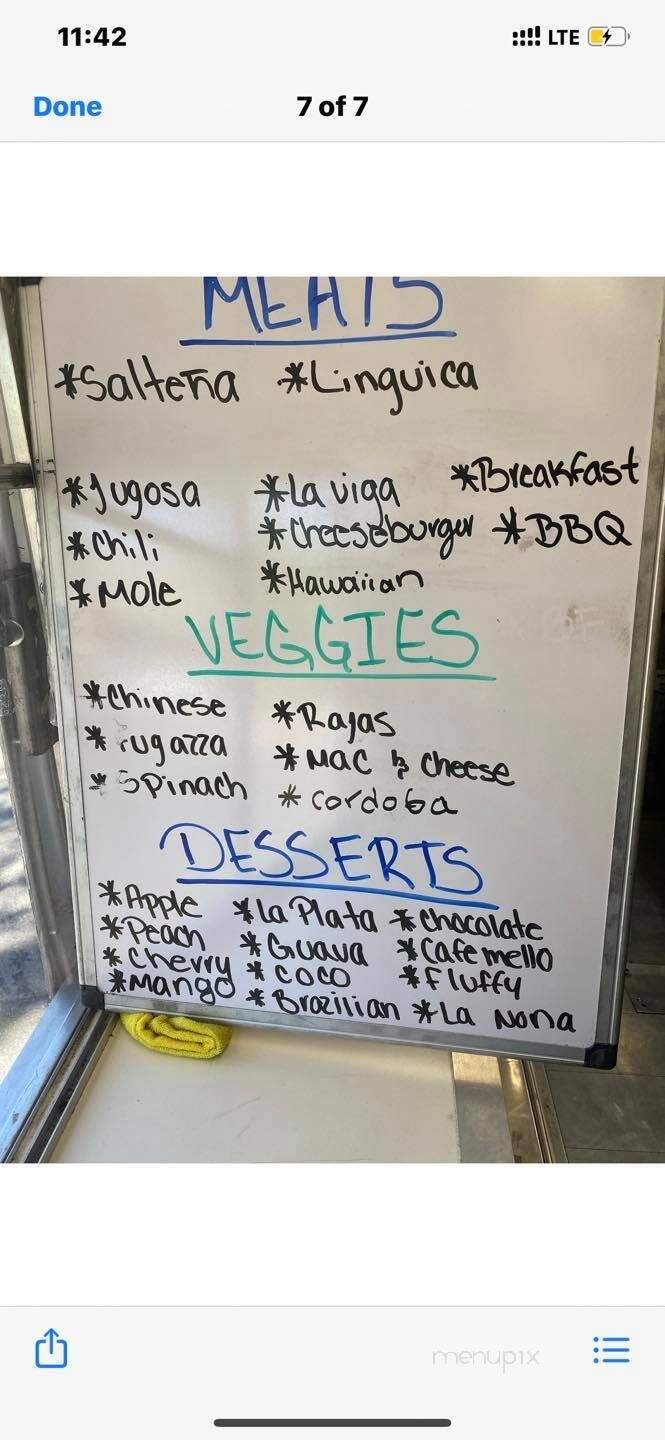 11:42
LTE
Done
7 of 7
MEATS
*Salteña *Linguica
*Jugosa *La viga *Breakfast
*Chili *Cheeseburger *BBQ
*Mole *Hawaiian
VEGGIES
*Chinese *Rajas
*rugazza *Mac & cheese
*Spinach *cordoba
DESSERTS
*Apple *La Plata *Chocolate
*Peach *Guava *Cafemello
*Cherry *coco *Fluffy
*Mango *Brazilian *La Nona
menupix